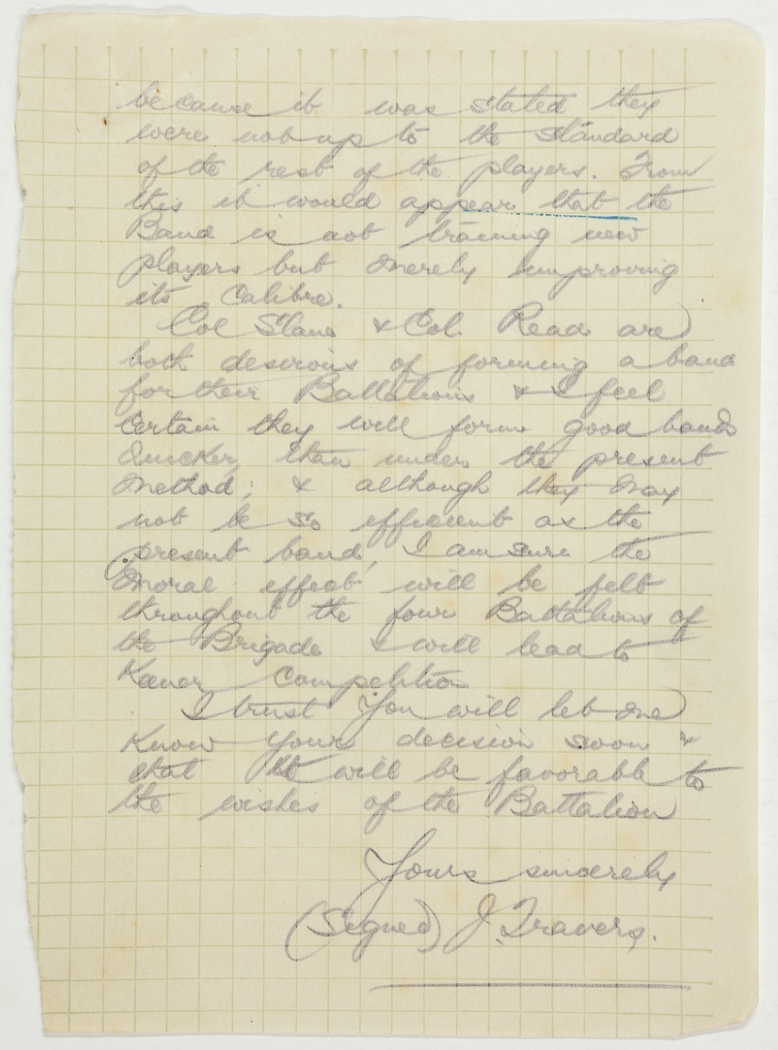 because it was stated they
were not up to the standard
of the rest of the players. From
this it would appear that the
Band is not training new
players but merely improving
its calibre.
Col Slane & Col. Read are
both desirous of forming a band
for their Battalions & I feel
certain they will form good bands
quicker, than under the present
method; & although they may
not be so efficient as the
present band, I am sure the
moral effect will be felt
throughout the four Battalions of
the Brigade & will lead to
Keener Competition
I trust you will let me
Know your decision soon &
that it will be favorable to
the wishes of the Battalion
Yours sincerely
(Signed) J. Travers.